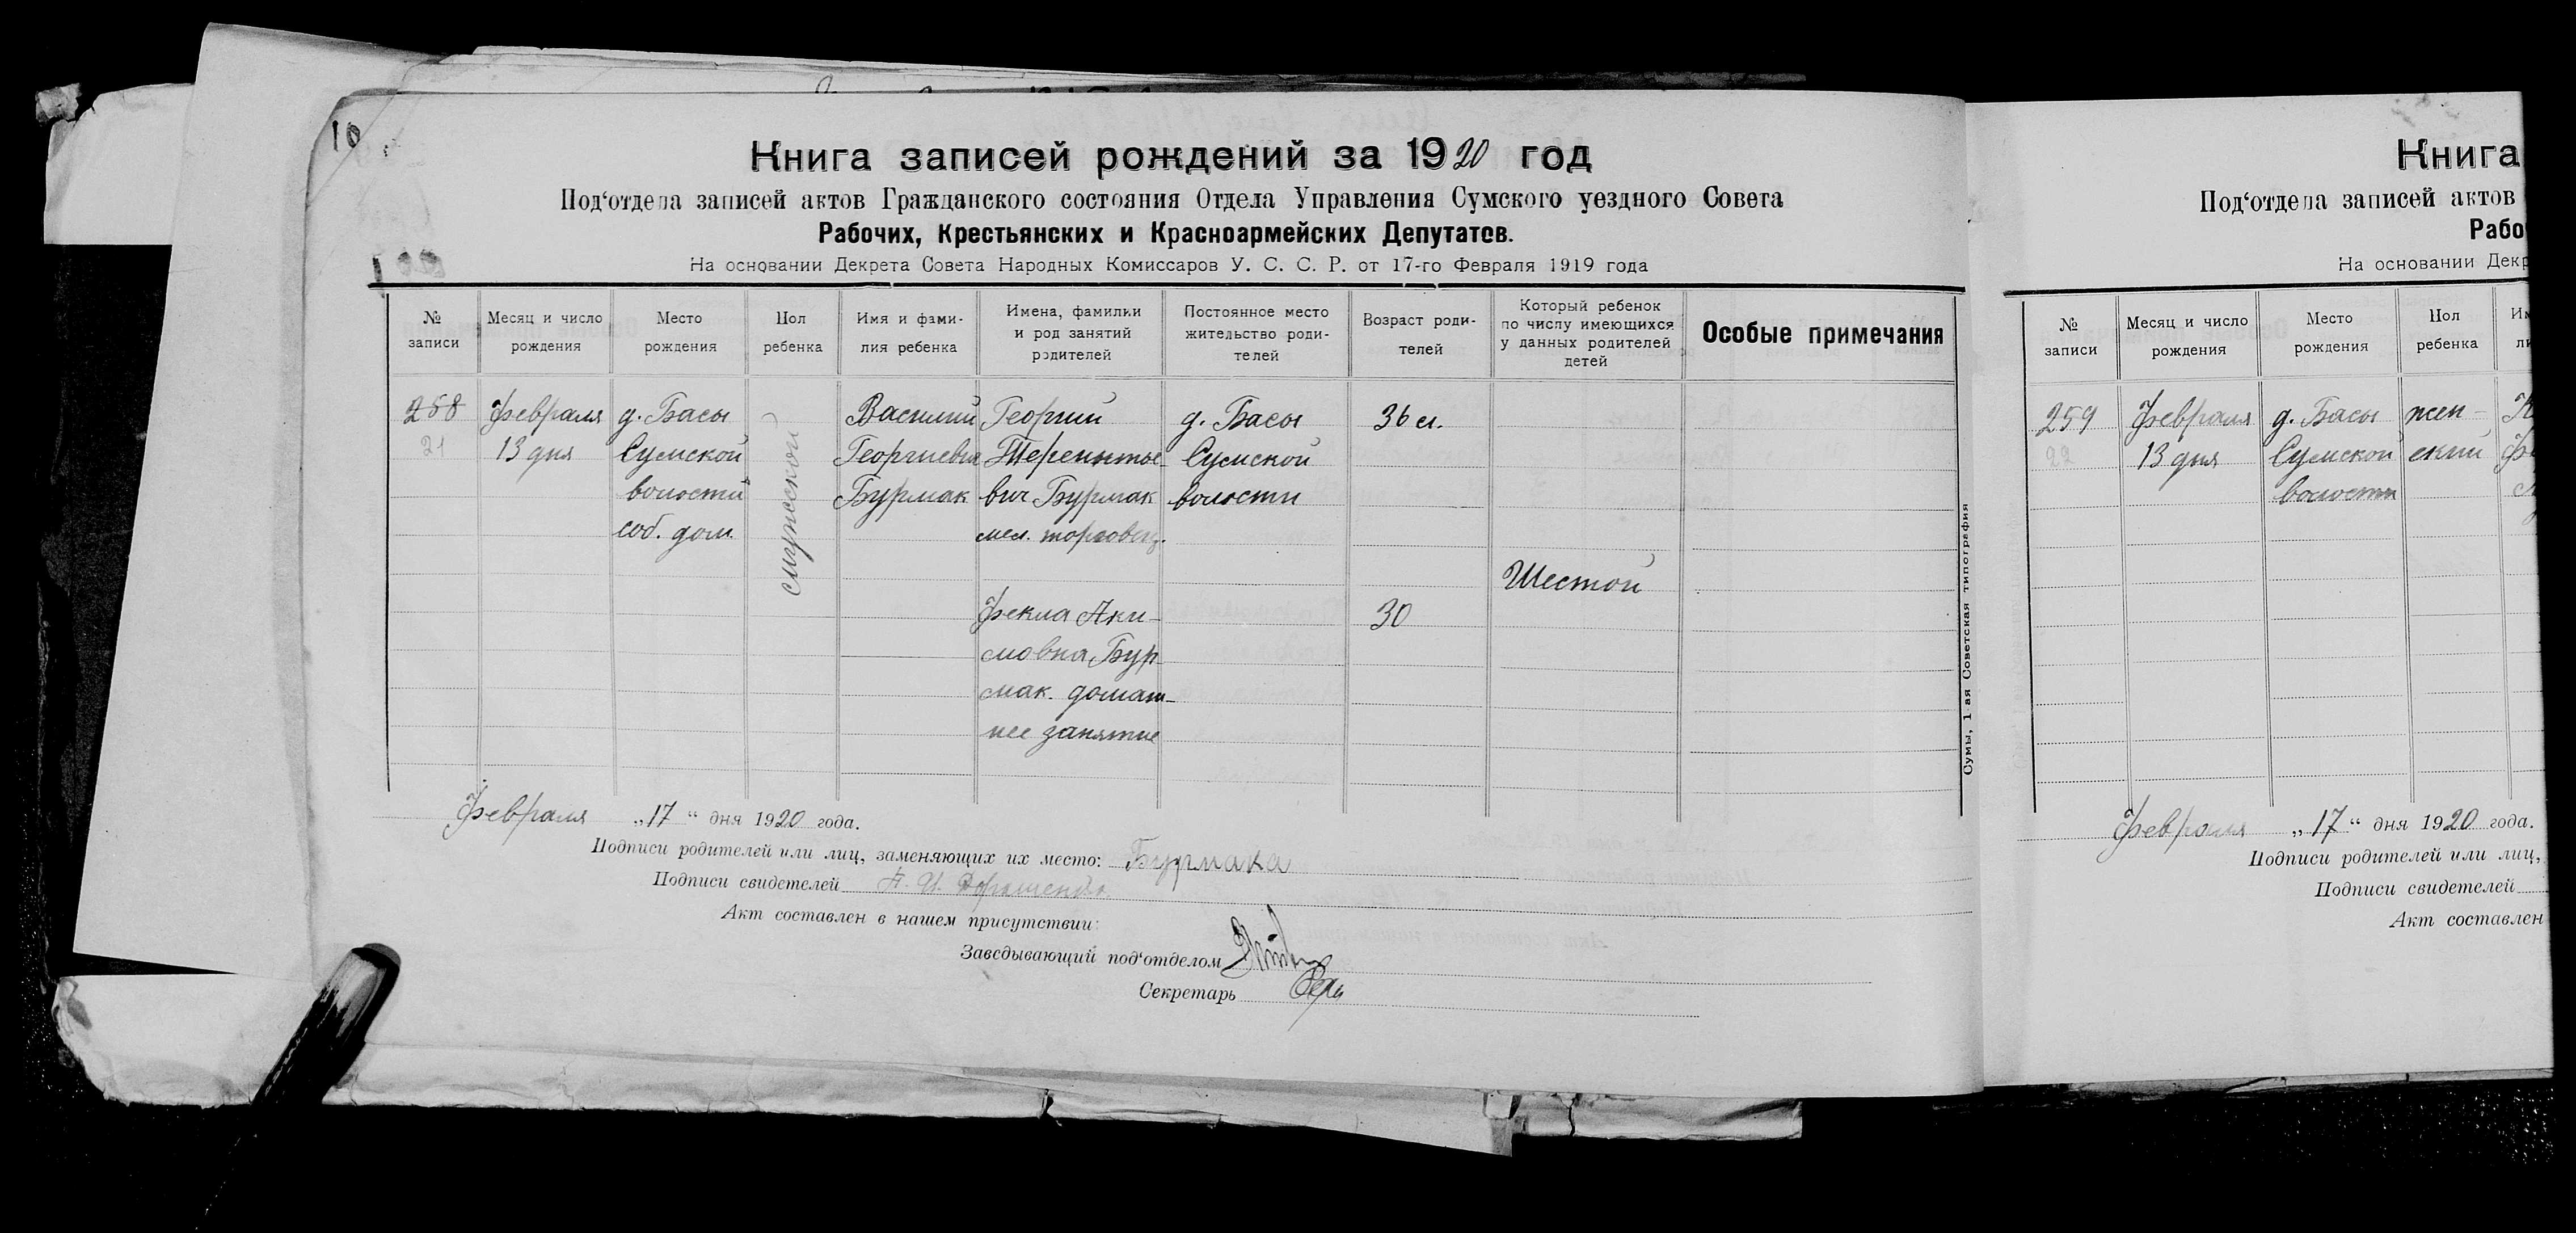 10
Книга записей рождений за 1920 год
Под‘отдела записей актов Гражданского состояния Отдела Управления Сумского уездного Совета
Рабочих, Крестьянских и Красноармейских Депутатов.
На основании Декрета Совета Народных Комиссаров У. С. С. Р. от 17-го Февраля 1919 года
№ записи
Месяц и число рождения
Место рождения
Пол ребенка
Имя и фами-
лия ребенка
Имена, фамилии
и род занятий
родителей
Постоянное место
жительство роди-
телей
Возраст роди-
телей
Который ребенок
по числу имеющихся
у данных родителей
детей
Особые примечания
258
21
Февраля
13 дня
д. Басы
Сумской
волости
соб. дом.
мужской
Василий
Георгиевич
Бурмак
Георгий
Терентье-
вич Бурмак
мел. торговец.
Фекла Аки-
мовна Бур
мак. домаш-
нее занятие
д. Басы
Сумской
волости
36 л.
30
Шестой
Февраля „17“ дня 1920 года.
Подписи родителей или лиц, заменяющих их место: Бурмака
Подписи свидетелей
Акт составлен в нашем присутствии:
Заведывающий под‘отделом
Секретарь
Сумы, 1-ая Советская типография
Книга
Под‘отдела записей актов
Рабо
На основании Декр
№ записи
Месяц и число рождения
Место рождения
Пол ребенка
259
22
Февраля
13 дня
д. Басы
Сумской
волости
жен-
ский
Февраля „17“ дня 1920 года.
Подписи родителей или лиц,
Подписи свидетелей
Акт составлен